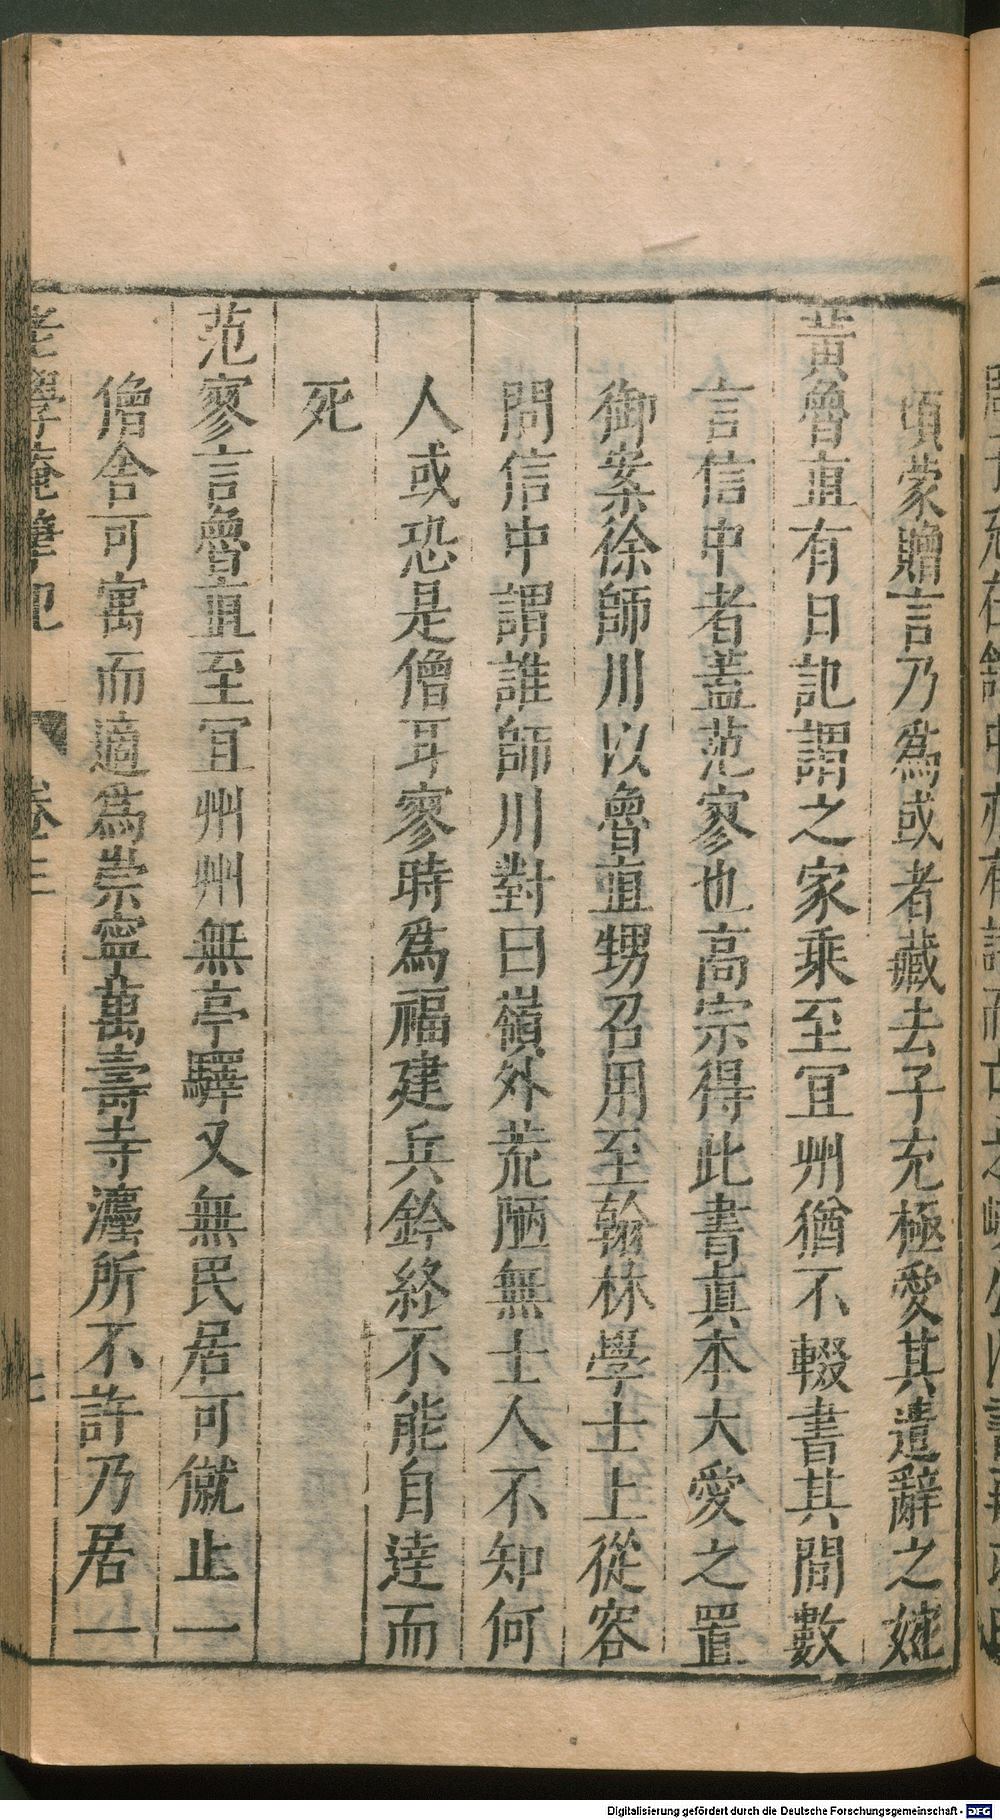 頃蒙贈言乃爲或者藏去子充極愛其遣辭之婉
黃魯直有日記謂之家乘至宜州猶不輟書其間數
言信中者蓋范寥也高宗得此書眞本大愛之置
御案徐師川以魯直甥召用至翰林學士上從容
問信中謂誰師川對曰嶺外荒陋無士人不知何
人或恐是僧耳寥時爲福建兵鈐終不能自達而
死
范寥言魯直至宜州州無亭驛又無民居可僦止一
僧舍可寓而適爲崇寧萬壽寺灋所不許乃居一
老學庵筆記 卷三 七
Digitalisierung gefördert durch die Deutsche Forschungsgemeinschaft - DFG